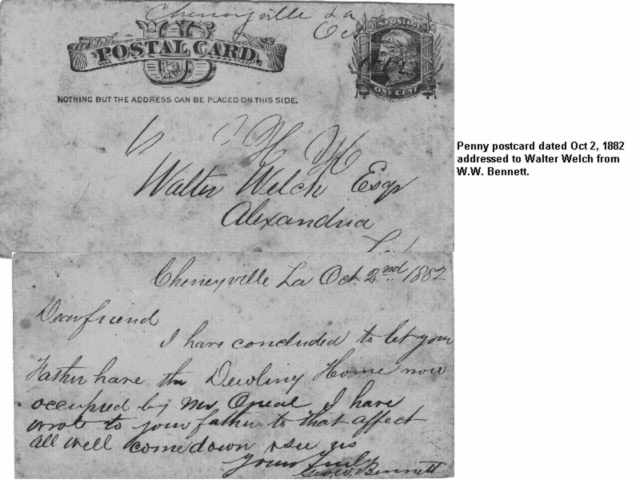 Cheneyville La
Oct
US
POSTAL CARD.
ONE CENT
NOTHING BUT THE ADDRESS CAN BE PLACED ON THIS SIDE.
Walter Welch Esqr
Alexandria
Penny postcard dated Oct 2, 1882
addressed to Walter Welch from
W.W. Bennett.
Cheneyville La Oct. 2nd 1882
Dear friend
I have concluded to let your
Father have the Dewling Home now
occupied by Mr Oneal I have
wrote to your father to that affect
all well come down & see us
Yours Truly
Bennett